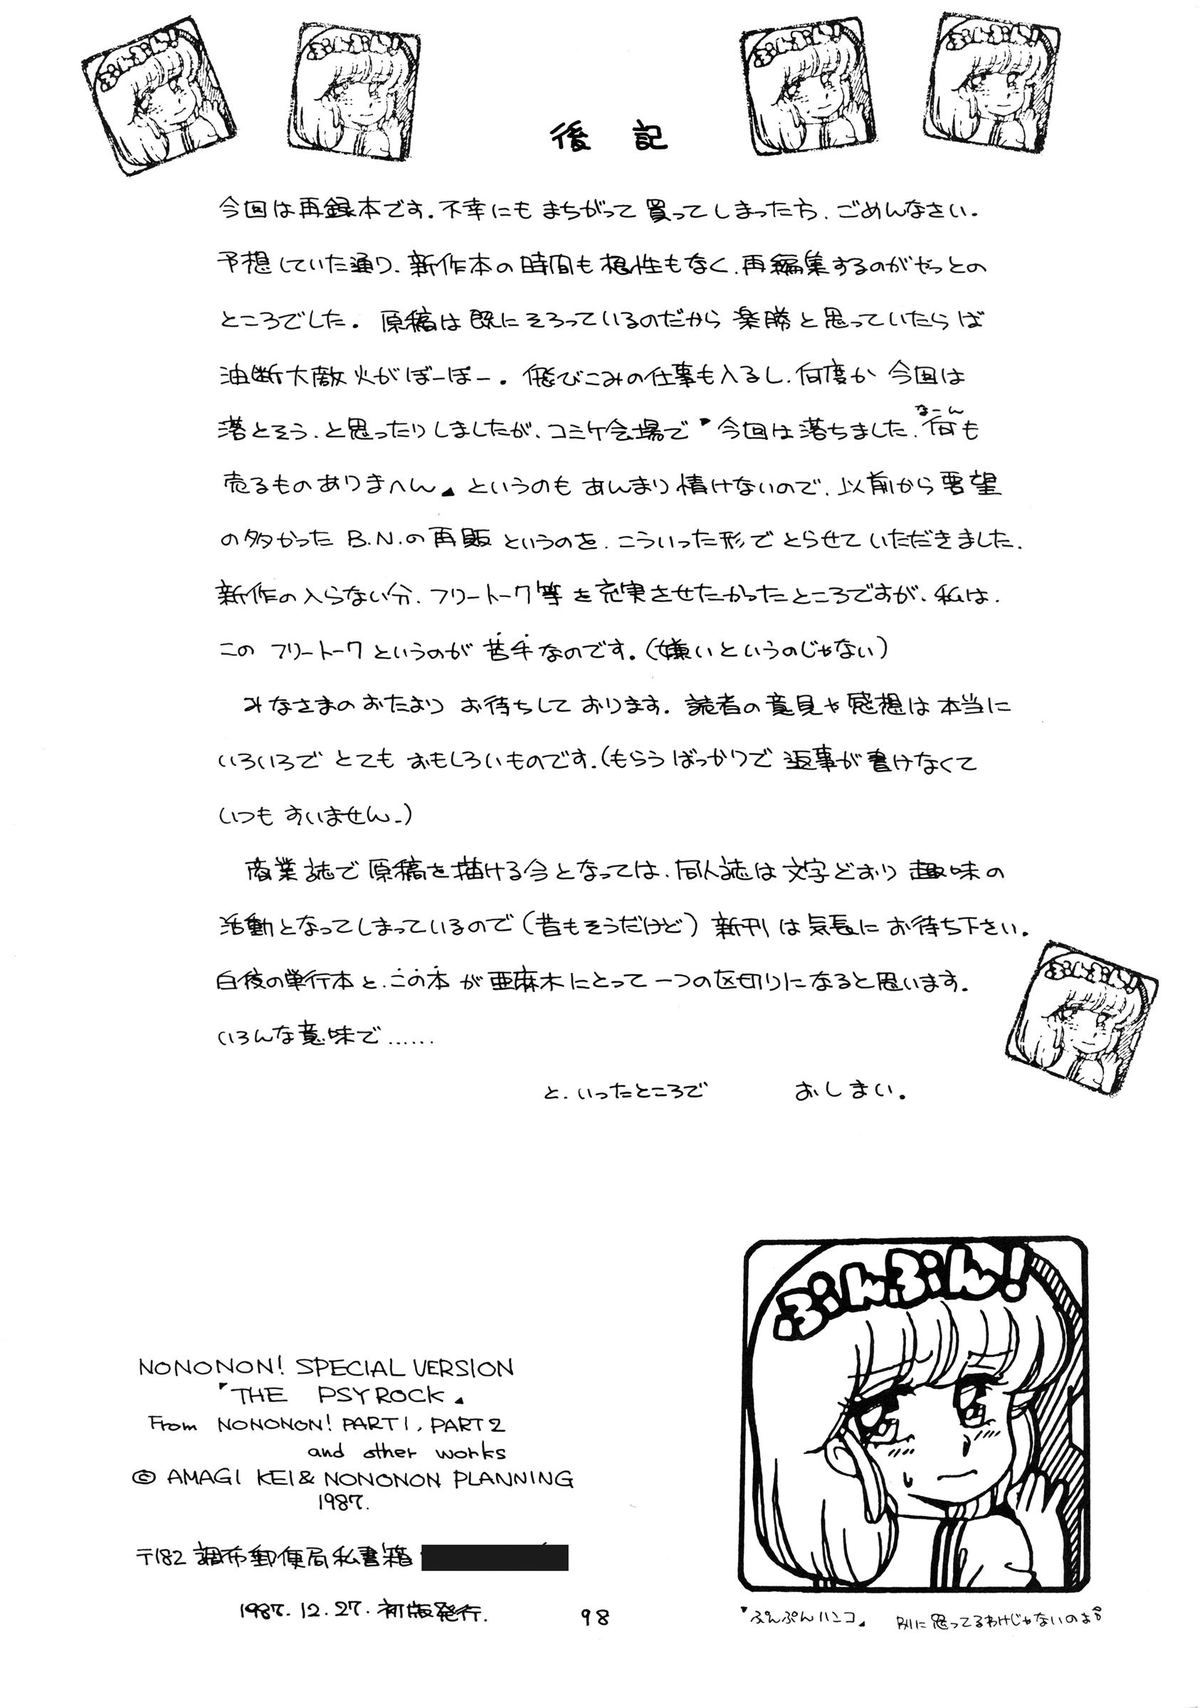 ぷんぷん!
ぷんぷん!
ぷんぷん!
ぷんぷん!
後記
今回は再録本です。不幸にもまちがって買ってしまった方、ごめんなさい。
予想していた通り、新作本の時間も根性もなく、再編集するのがやっとの
ところでした。原稿は既にそろっているのだから楽勝と思っていたらば
油断大敵火がぼーぼー。飛びこみの仕事も入るし、何度か今回は
落とそう、と思ったりしましたが、コミケ会場で『今回は落ちました、何も
なーん
売るものありまへん』というのもあんまり情けないので、以前から要望
の多かったB.N.の再販というのを、こういった形でとらせていただきました。
新作の入らない分、フリートーク等を充実させたかったところですが、私は、
このフリートークというのが苦手なのです。(嫌いというのじゃない)
みなさまのおたよりお待ちしております。読者の意見や感想は本当に
いろいろでとてもおもしろいものです。(もらうばっかりで返事が書けなくて
いつもすいません。)
商業誌で原稿を描ける今となっては、同人誌は文字どおり趣味の
活動となってしまっているので(昔もそうだけど)新刊は気長にお待ち下さい。
白夜の単行本と、この本が亜麻木にとって一つの区切りになると思います。
いろんな意味で……
ぷんぷん!
と、いったところで おしまい。
ぷんぷん!
NONONON! SPECIAL VERSION
『THE PSYROCK』
From NONONON! PART1, PART2
and other works
© AMAGI KEI & NONONON PLANNING
1987.
〒182 調布郵便局私書箱
1987.12.27.初版発行.
98
『ぷんぷんハンコ』 別に怒ってるわけじゃないのよ